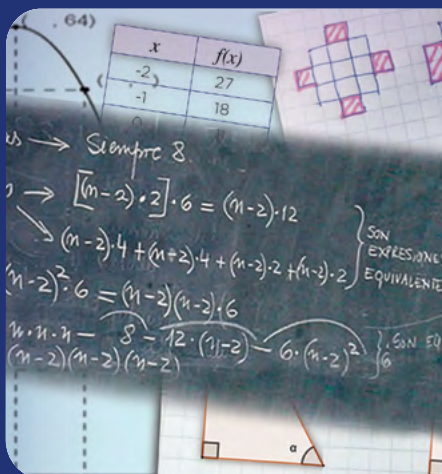 , 64)
x f(x)
-2 27
-1 18
Siempre 8.
→ [(n-2)·2]·6 = (n-2)·12
(n-2)·4 + (n-2)·4 + (n-2)·2 + (n-2)·2
SON
EXPRESIONES
EQUIVALENTE
(n-2)²·6 = (n-2)(n-2)·6
n·n·n - 8 - 12·(n-2) - 6·(n-2)²
(n-2)(n-2)(n-2)
α